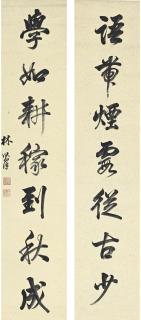 語帶煙霞從古少
學如耕稼到秋成
林